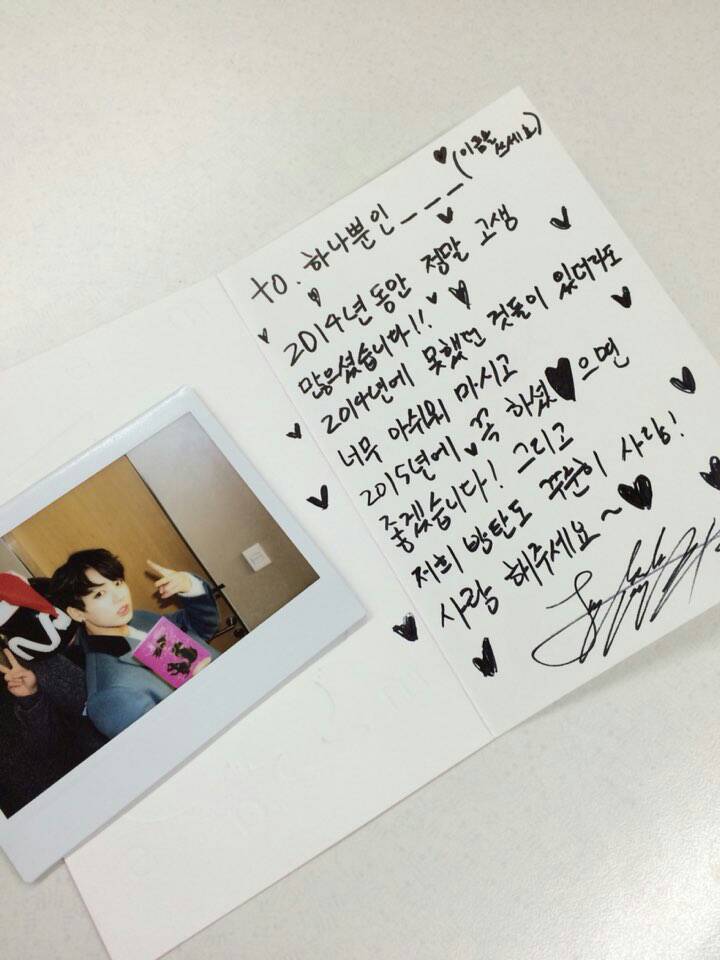 (이름을
쓰세요)
to. 하나뿐인 _ _ _
2014년 동안 정말 고생
많으셨습니다!!
2014년에 못했던 것들이 있더라도
너무 아쉬워 마시고
2015년에 꼭 하셨으면
좋겠습니다! 그리고
저희 방탄도 꾸준히 사랑!
사랑 해주세요~